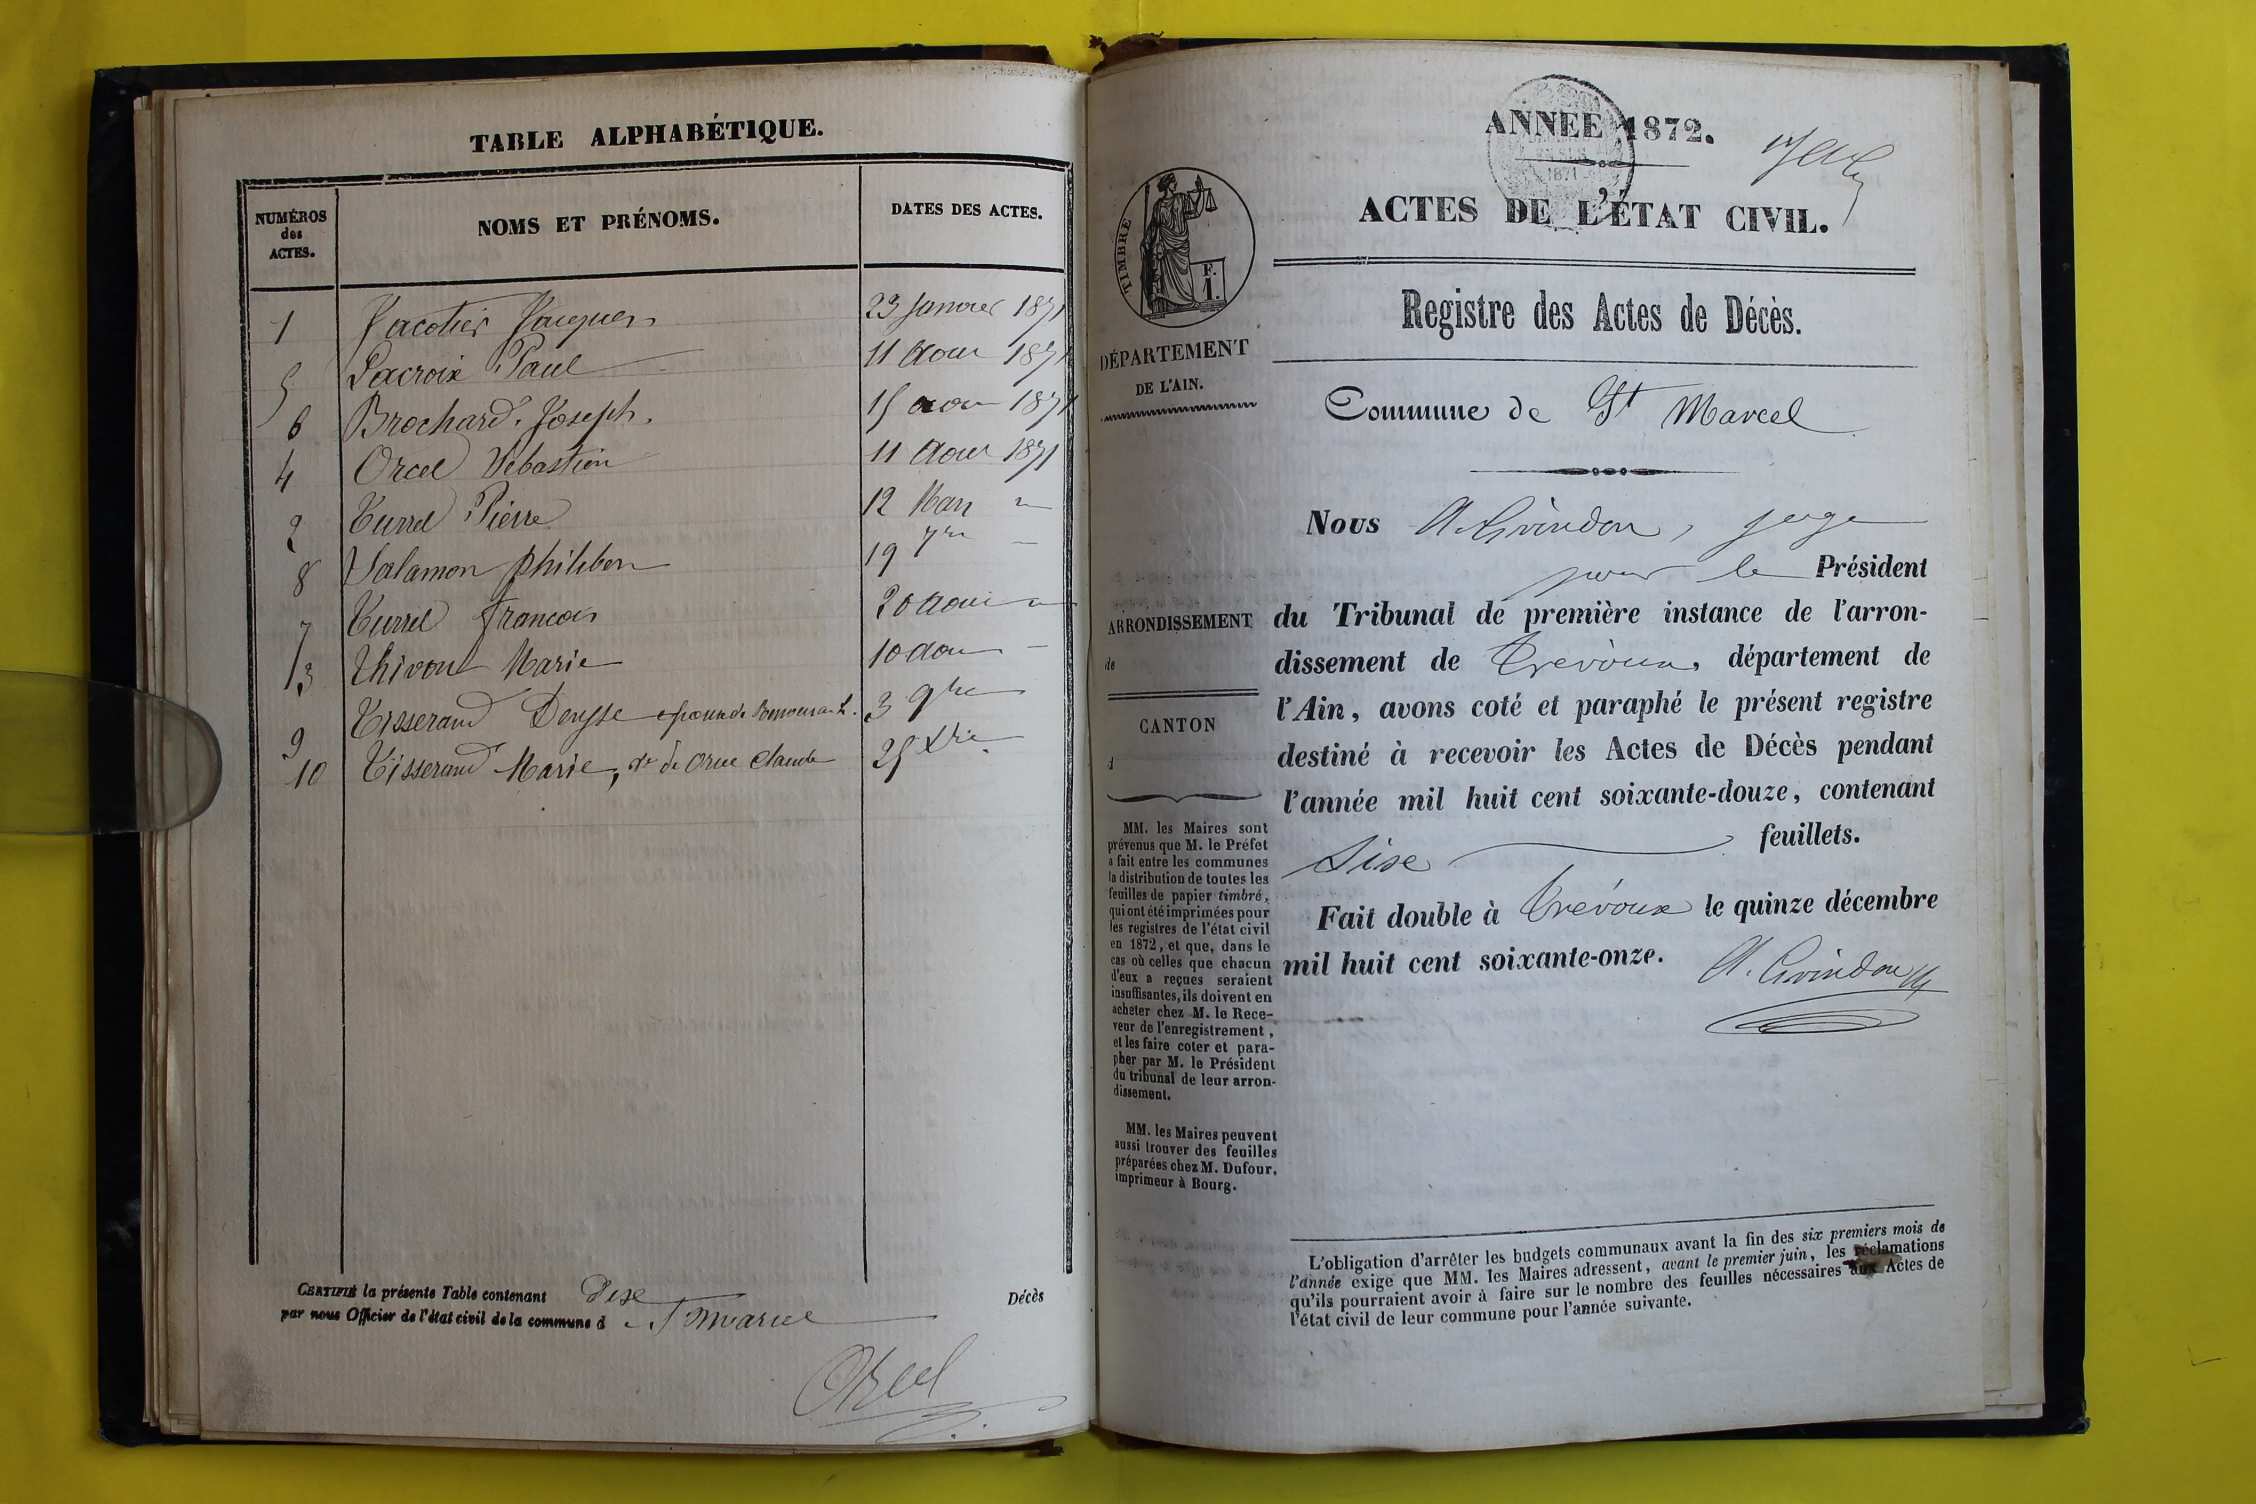 TABLE ALPHABÉTIQUE.
NUMÉROS
des
ACTES.
NOMS ET PRÉNOMS.
DATES DES ACTES.
1 Jacotier Jacques 23 Janvier 1871
5 Lacroix Paul 11 Aout 1871
6 Brochard Joseph. 15 aout 1871
4 Orcel Sébastien 11 Aout 1871
2 Turrel Pierre 12 Mars "
8 Salamon philiber 19 7bre -
7 Turrel francois 20 Aout "
3 Thivout Marie 10 aout -
9 Tisserand Denyse épouse de 3 9bre
10 Tisserand Marie, de Orcel Claude 25 Xbre
CERTIFIÉ la présente Table contenant Dix Décès
par nous Officier de l'état civil de la commune d St Marcel
Orcel
ANNÉE 1872.
1871
ACTES DE L'ÉTAT CIVIL.
Registre des Actes de Décès.
TIMBRE
F.
I.
DÉPARTEMENT
DE L'AIN.
Commune de St Marcel
Nous A. Grindon, juge
pour le Président
du Tribunal de première instance de l'arron-
dissement de Trévoux, département de
l'Ain, avons coté et paraphé le présent registre
destiné à recevoir les Actes de Décès pendant
l'année mil huit cent soixante-douze, contenant
Sixe feuillets.
Fait double à Trévoux le quinze décembre
mil huit cent soixante-onze.
A. Grindon
ARRONDISSEMENT
de
CANTON
d
MM. les Maires sont
prévenus que M. le Préfet
a fait entre les communes
la distribution de toutes les
feuilles de papier timbré,
qui ont été imprimées pour
les registres de l'état civil
en 1872, et que, dans le
cas où celles que chacun
d'eux a reçues seraient
insuffisantes, ils doivent en
acheter chez M. le Rece-
veur de l'enregistrement,
et les faire coter et para-
pher par M. le Président
du tribunal de leur arron-
dissement.
MM. les Maires peuvent
aussi trouver des feuilles
préparées chez M. Dufour,
imprimeur à Bourg.
L'obligation d'arrêter les budgets communaux avant la fin des six premiers mois de
l'année exige que MM. les Maires adressent, avant le premier juin, les réclamations
qu'ils pourraient avoir à faire sur le nombre des feuilles nécessaires aux Actes de
l'état civil de leur commune pour l'année suivante.